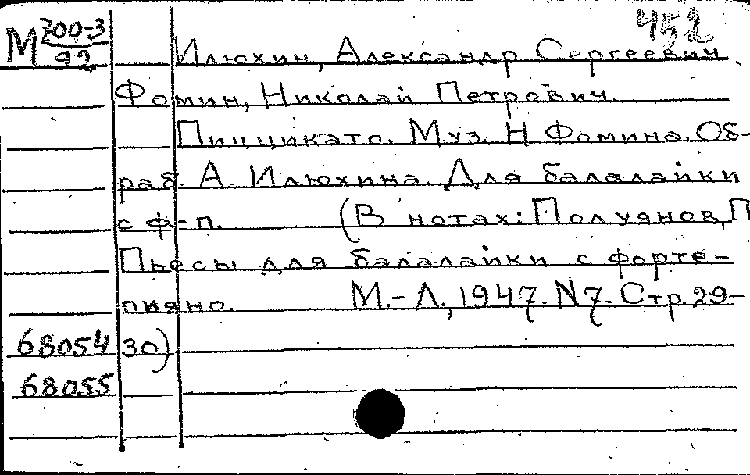 452
М 700-3/92
Илюхин, Александр Сергеевич
Фомин, Николай Петрович.
Пиццикато. Муз. Н Фомина. Об-
раб. А. Илюхина. Для балалайки
с ф-п. (В нотах: Полуянов, П
Пьесы для балалайки с форте-
пияно. М.-Л., 1947. N7. Стр. 29-
68054 30)
68055